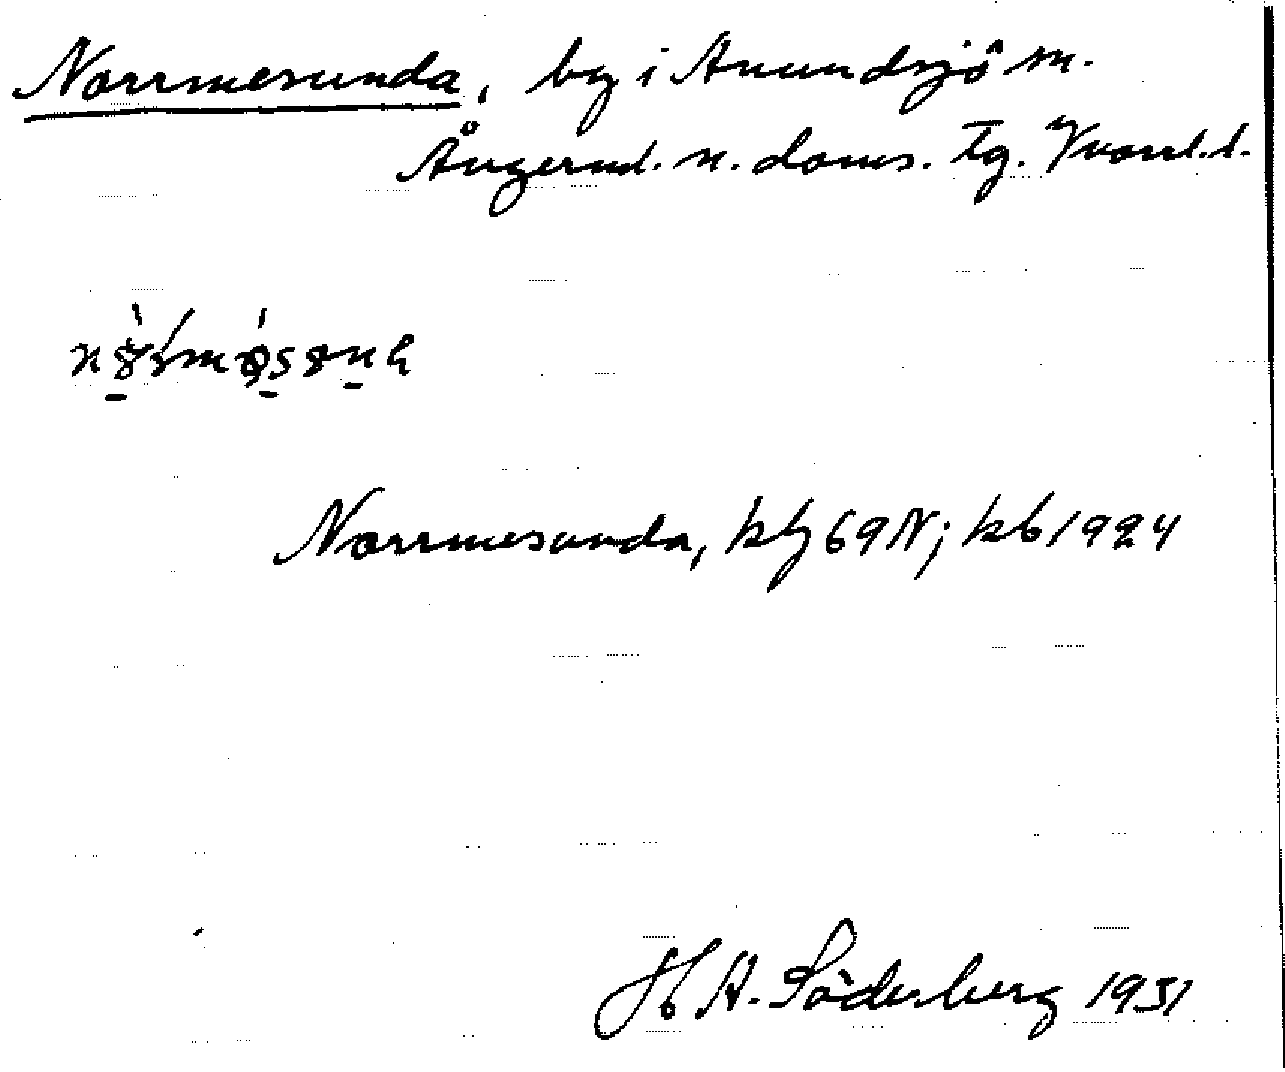 Norrmesunda, by i Anundsjö sn.
Ångerml. n. doms. tg. Vnorrl. l.
Norrmesunda, kbg 69 N; kb 1924
H A. Söderberg 1931